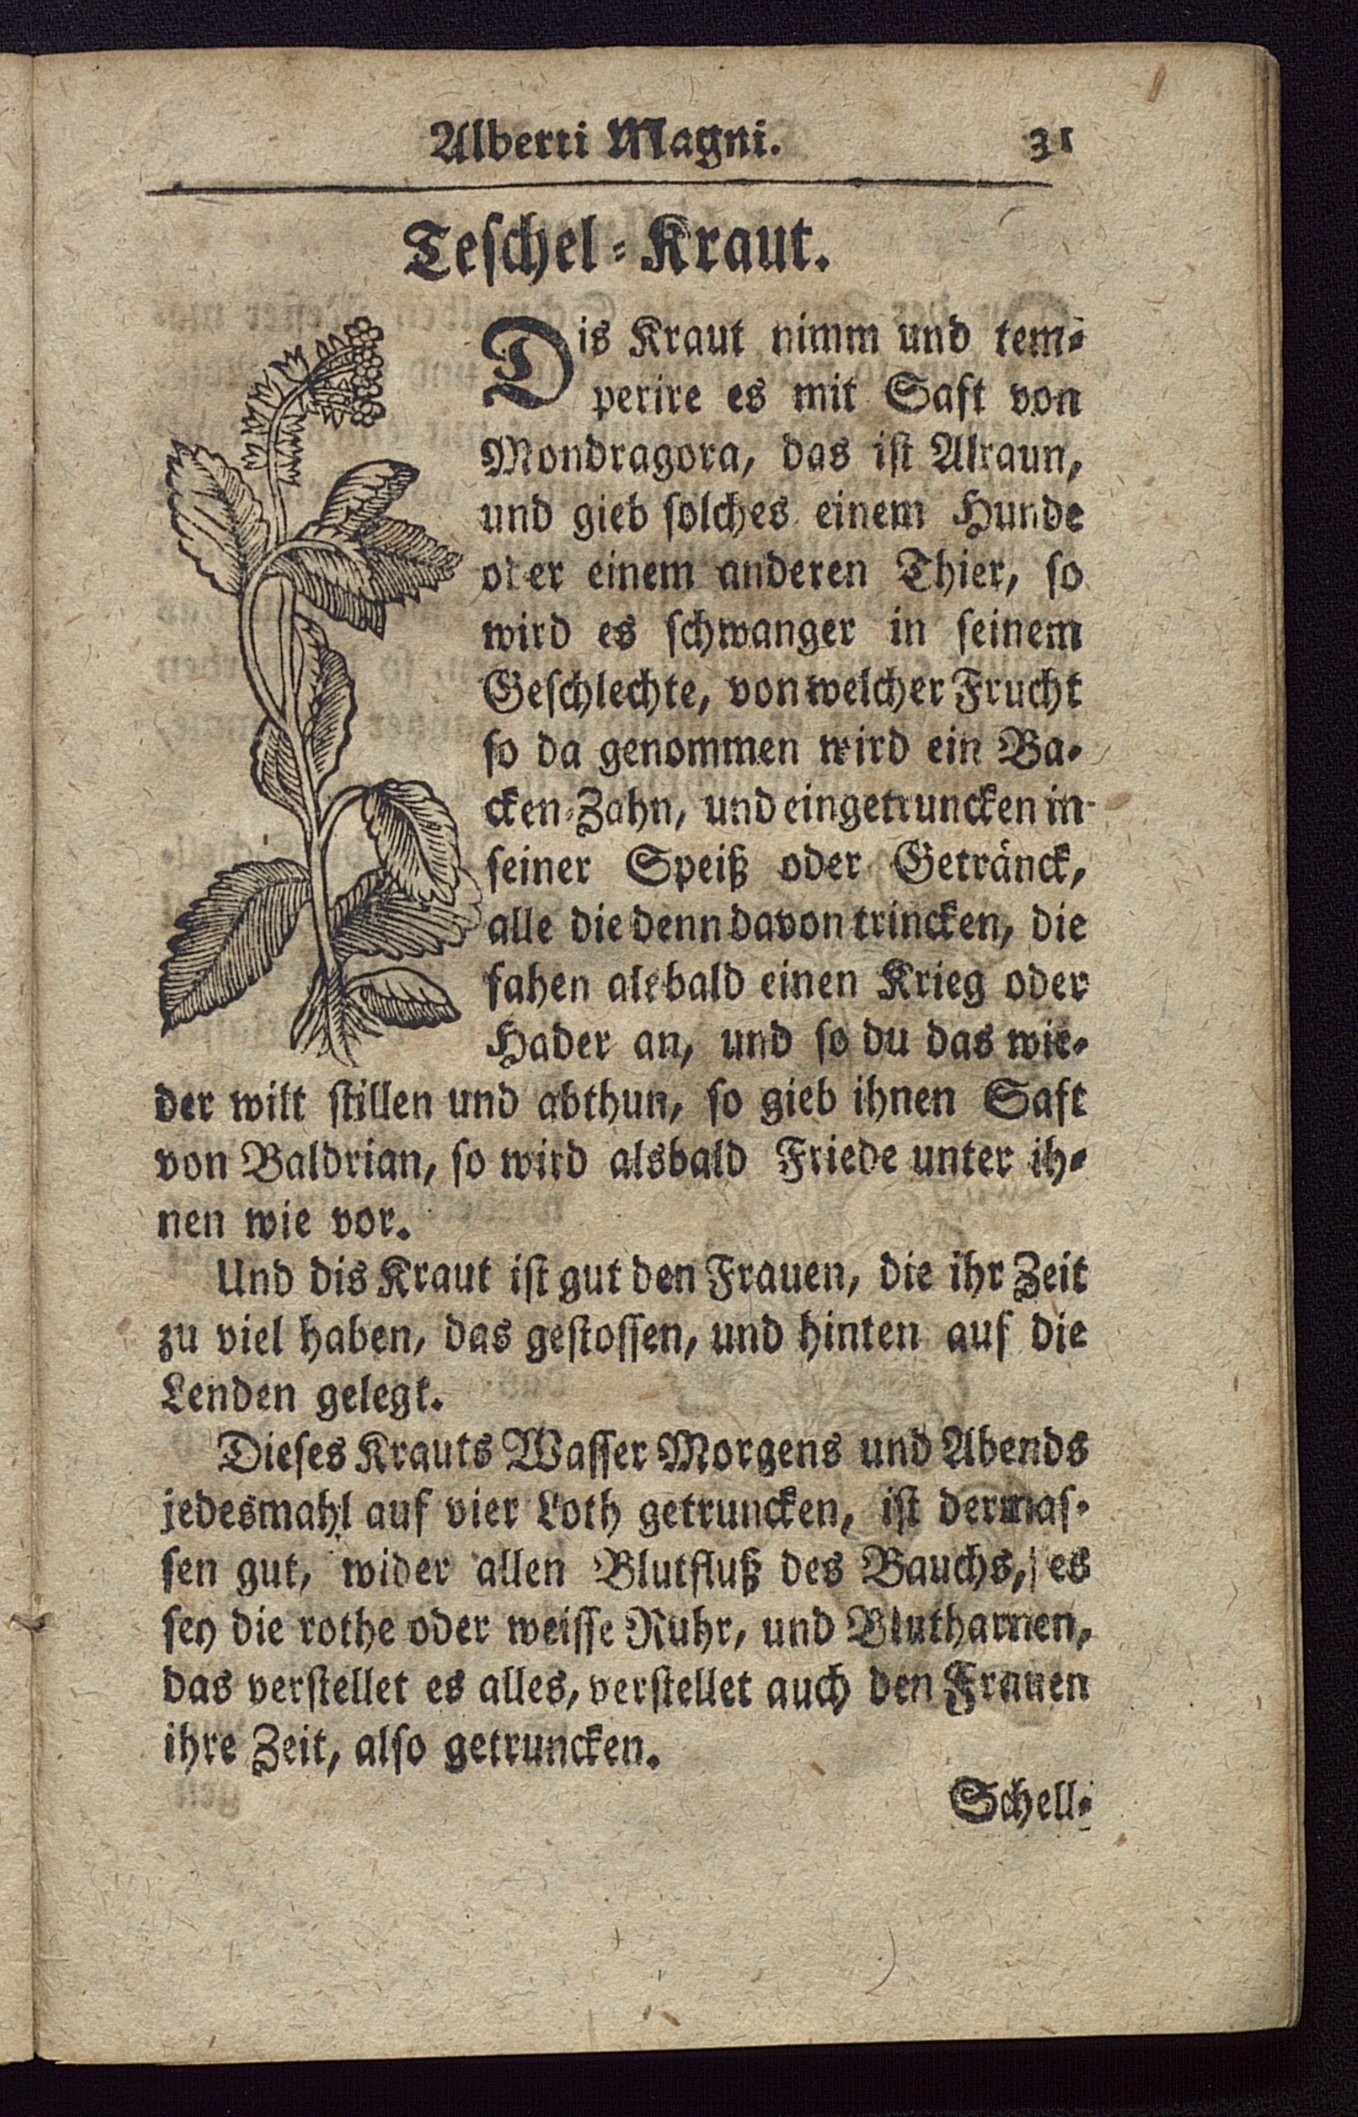 Alberti Magni. 31
Teschel-Kraut.
Dis Kraut nimm und tem-
perire es mit Saft von
Mondragora, das ist Alraun,
und gieb solches einem Hunde
oder einem anderen Thier, so
wird es schwanger in seinem
Geschlechte, von welcher Frucht
so da genommen wird ein Ba-
cken-Zahn, und eingetruncken in
seiner Speiß oder Getränck,
alle die denn davon trincken, die
fahen alsbald einen Krieg oder
Hader an, und so du das wie-
der wilt stillen und abthun, so gieb ihnen Saft
von Baldrian, so wird alsbald Friede unter ih-
nen wie vor.
Und dis Kraut ist gut den Frauen, die ihr Zeit
zu viel haben, das gestossen, und hinten auf die
Lenden gelegt.
Dieses Krauts Wasser Morgens und Abends
jedesmahl auf vier Loth getruncken, ist dermas-
sen gut, wider allen Blutfluß des Bauchs, es
sey die rothe oder weisse Ruhr, und Blutharnen,
das verstellet es alles, verstellet auch den Frauen
ihre Zeit, also getruncken.
Schell-